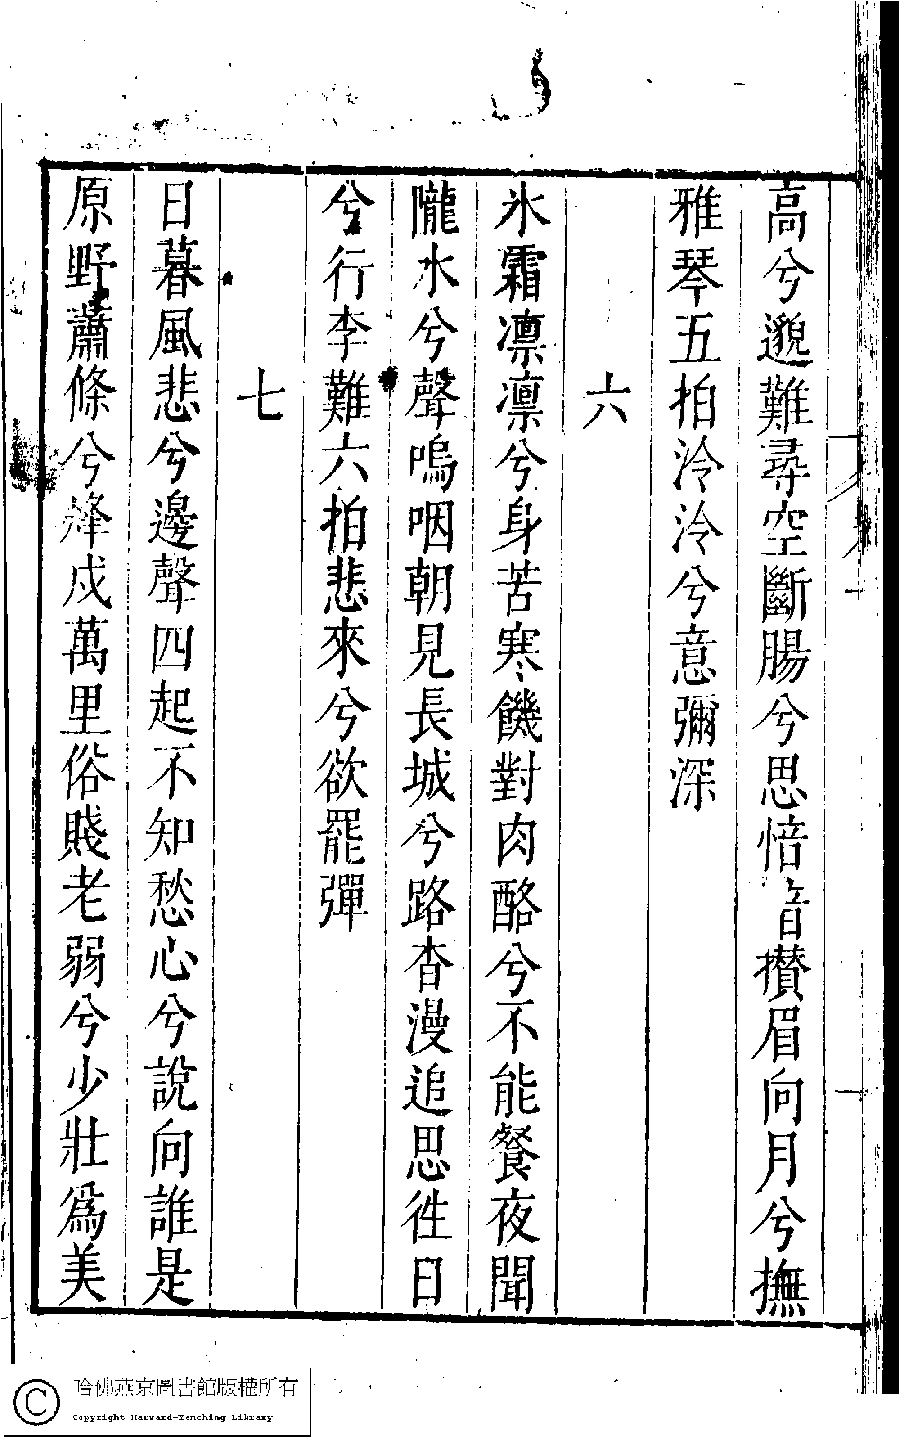 高兮邈難尋空斷腸兮思愔音攅眉向月兮撫
雅琴五拍泠泠兮意彌深
六
氷霜凛凛兮身苦寒饑對肉酪兮不能餐夜聞
隴水兮聲嗚咽朝見長城兮路杳漫追思徃日
兮行李難六拍悲來兮欲罷彈
七
日暮風悲兮邊聲四起不知愁心兮說向誰是
原野蕭條兮烽戍萬里俗賤老弱兮少壯爲美
哈佛燕京圖書館版權所有
Copyright Harvard-Yenching Library